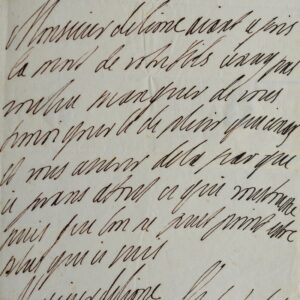 Monsieur de lione aiant apris
la mort de vostre fils ie nay pas
voulu manquer de vous
tesmoigner le de plesir que ien ay
et vous assurer de la part que
ie prans a tout ce qui vous touche
puis que lon ne peut point estre
plus que ie suis
Monsieur de lione